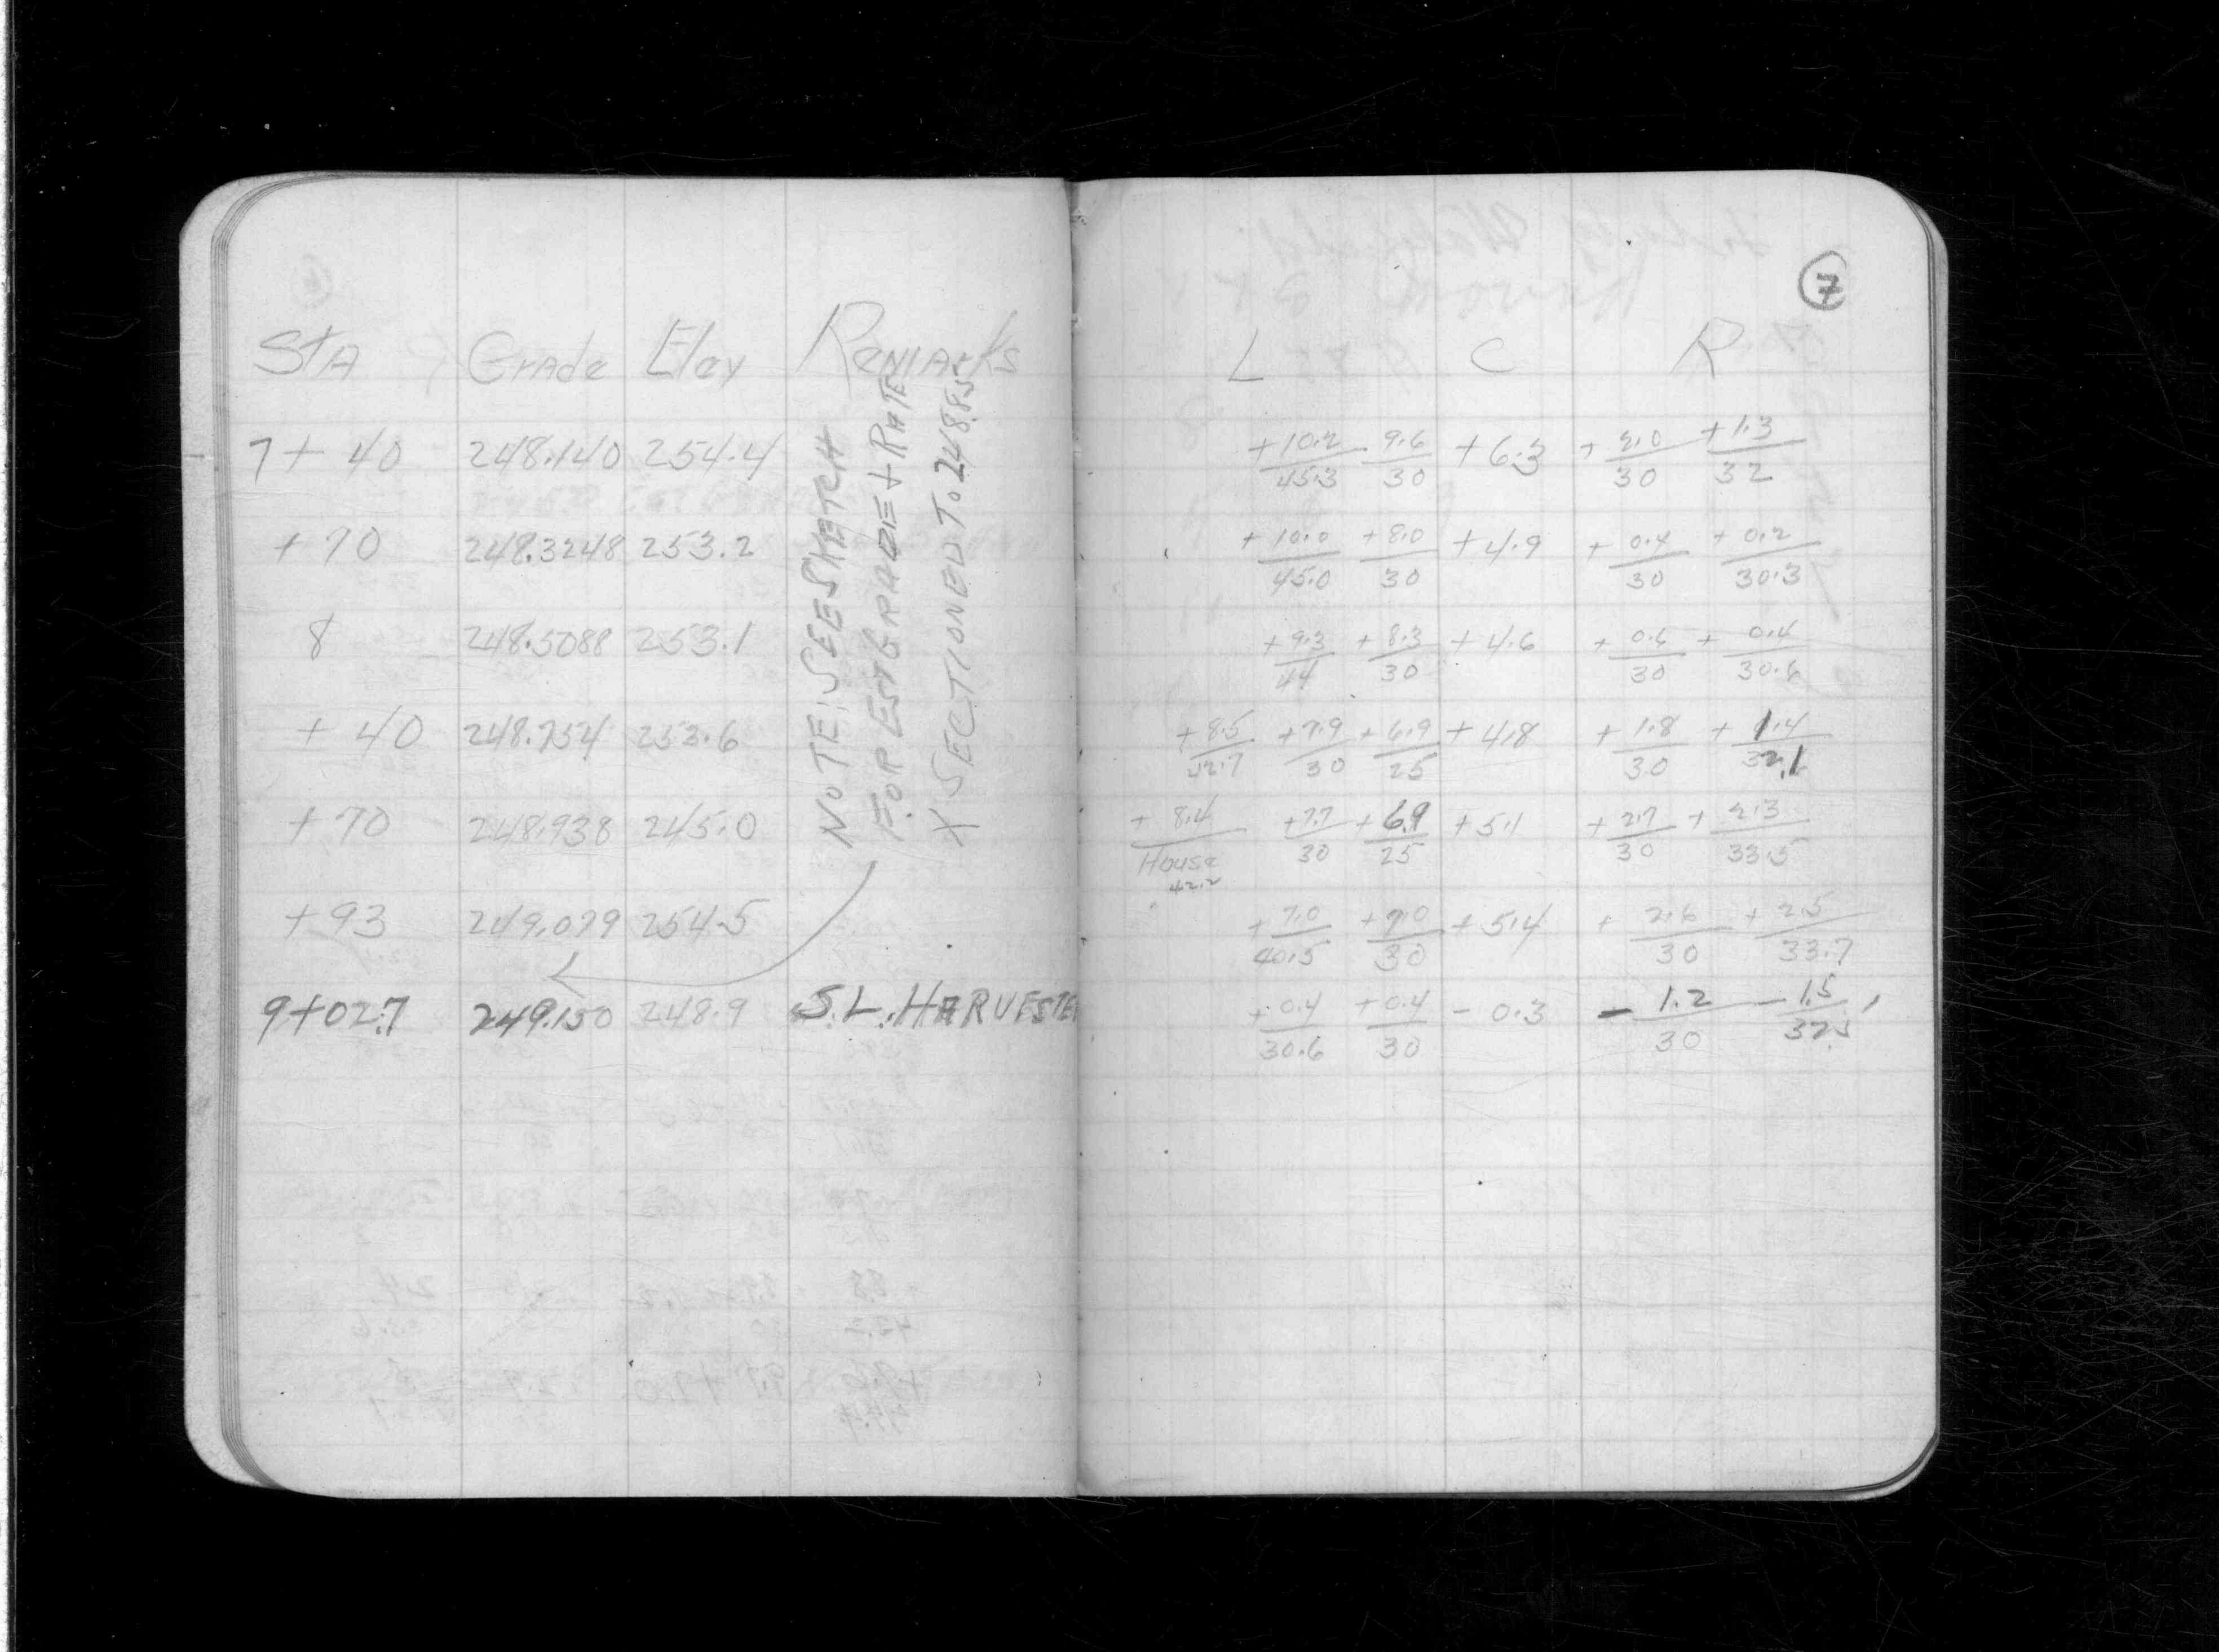 7
Sta Grade Elev Remarks L C R
7+40 248.140 254.4 +10.2/45.3 9.6/30 +6.3 +2.0/30 +1.3/32
+70 248.3248 253.2 +10.0/45.0 +8.0/30 +4.9 +0.4/30 +0.2/30.3
8 248.5088 253.1 +9.3/44 +8.3/30 +4.6 +0.6/30 +0.4/30.6
+40 248.754 253.6 +8.5/42.7 +7.9/30 +6.9/25 +4.8 +1.8/30 +1.4/32.1
+70 248.938 245.0 +8.4/House 42.2 +7.7/30 +6.9/25 +5.1 +2.7/30 +2.3/33.5
+93 249.079 254.5 +7.0/40.5 +7.0/30 +5.4 +2.6/30 +2.5/33.7
9+02.7 249.150 248.9 S.L. HARVESTER +0.4/30.6 +0.4/30 -0.3 -1.2/30 -1.5/32.5
NOTE: SEE SKETCH
FOR EST GRADE + RATE
X SECTIONED TO 248.85